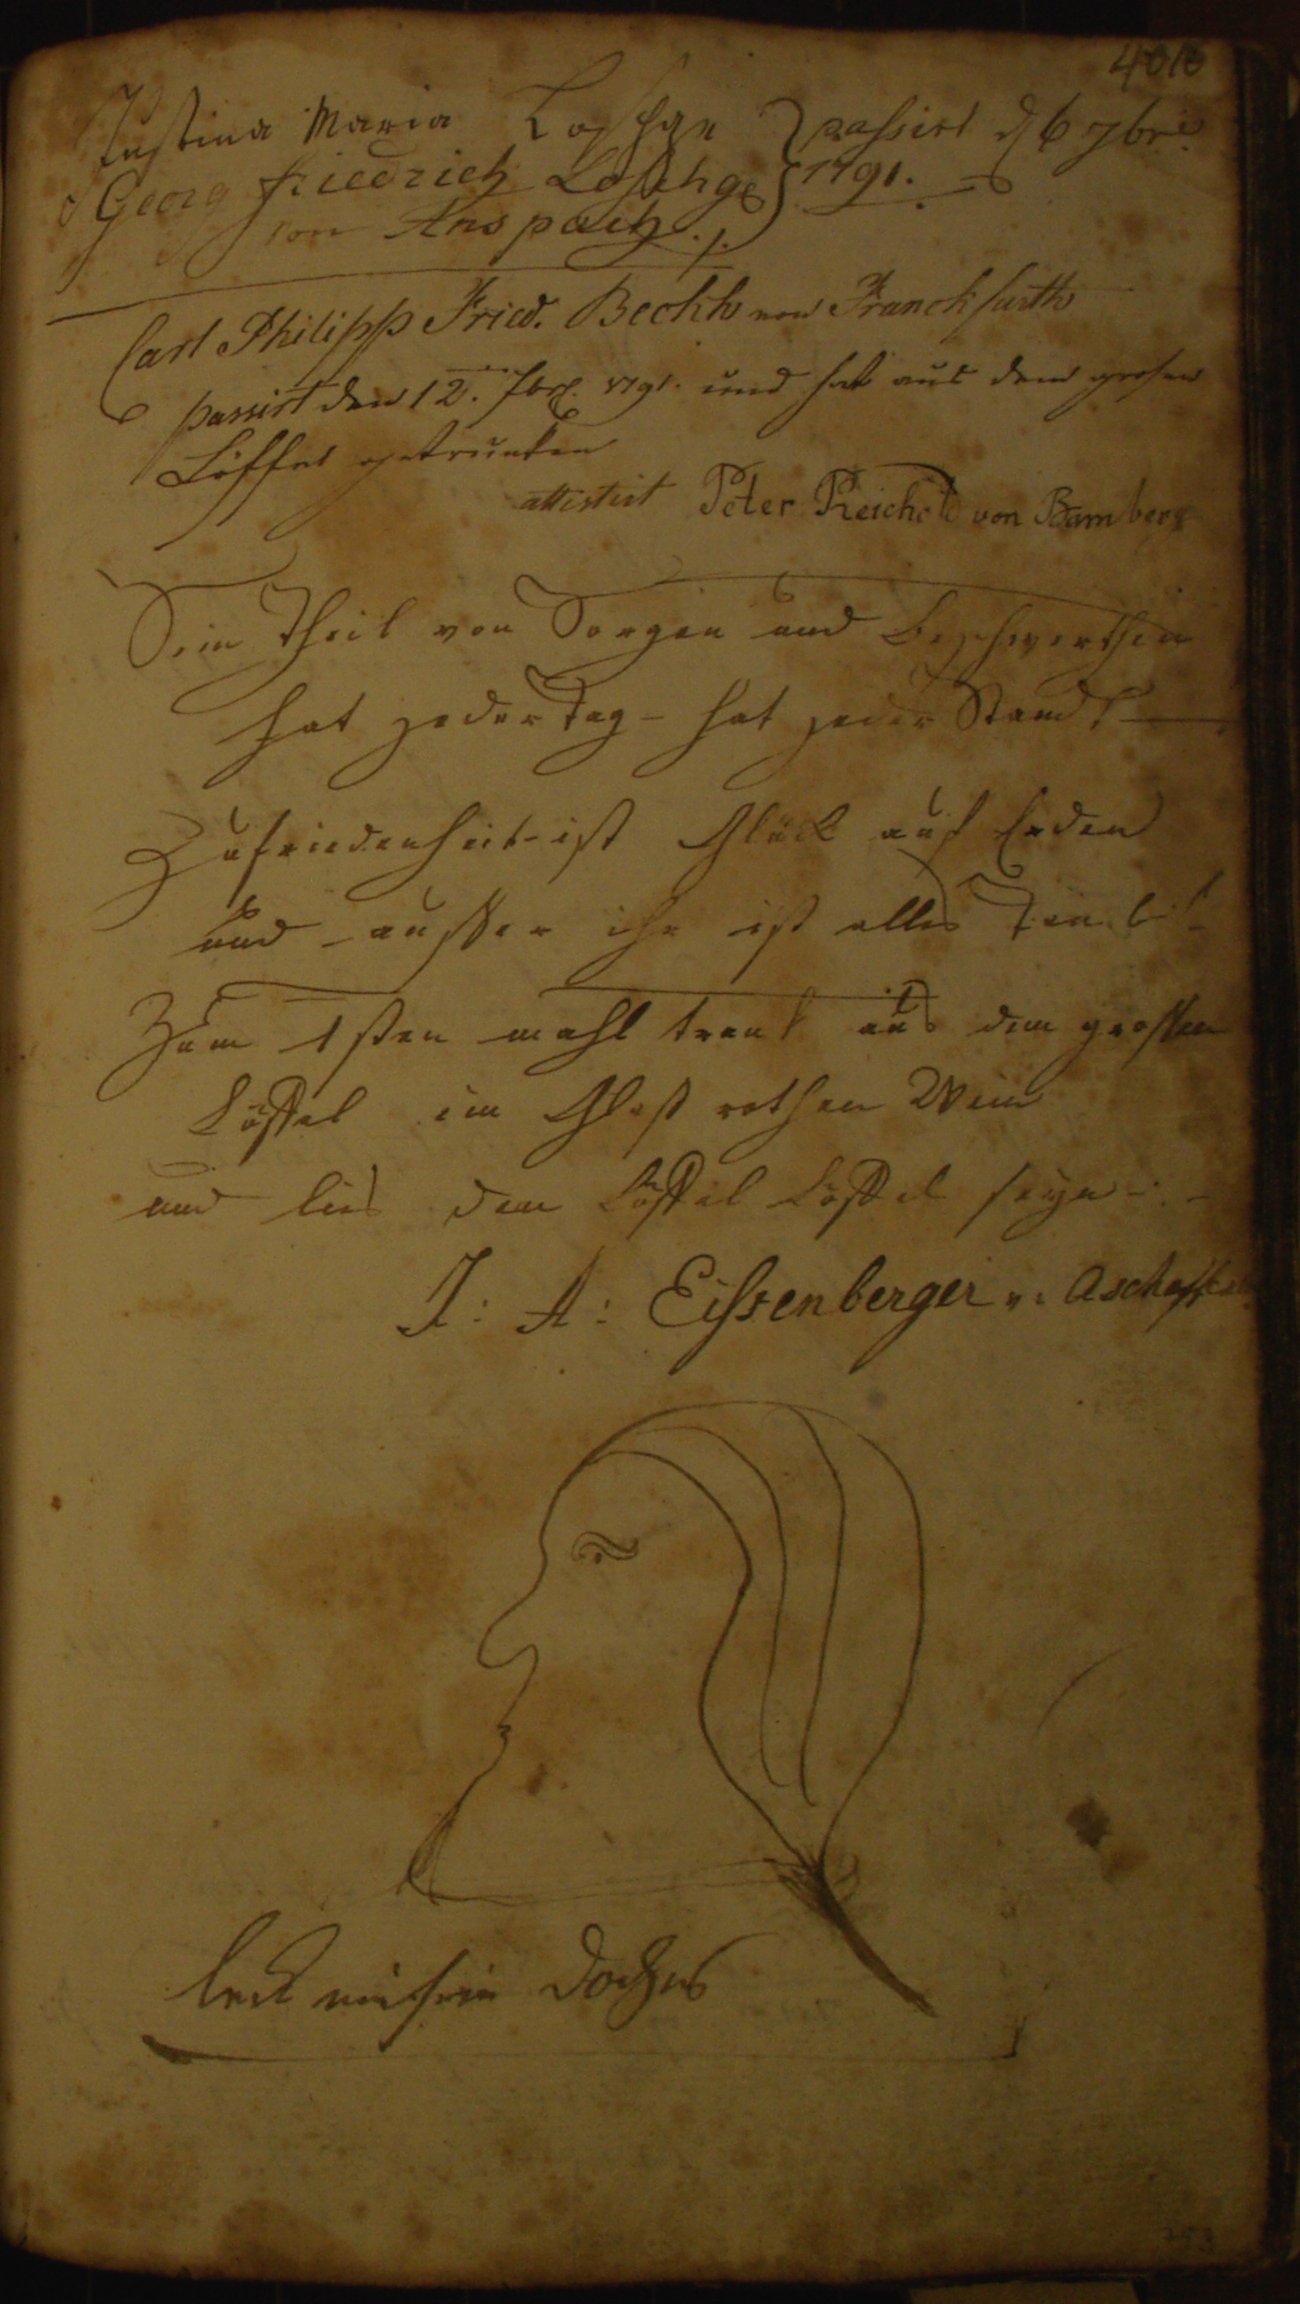 401b
Justina Maria Loschge } passirt d 6 7bris
Georg friedrich Loschge } 1791.
von Anspach ./.
Carl Philipp Fried. Bechh von Franckfurth
passirt den 12. 7br. 1791. und hat aus dem grosen
Löffel getrunken
attestirt Peter Reichelt von Bamberg
Sein Theil von Sorgen und Beschwerthen
hat jeder Tag – hat jeder Stand –
Zufriedenheit ist Glück auf Erden
und – ausser ihr ist alles
Zum 1sten mahl trank aus dem grossen
Löffel im Glaß rothen Wein
und lies den Löffel Löffel seyn –
J: A: Eissenberger v:
leck